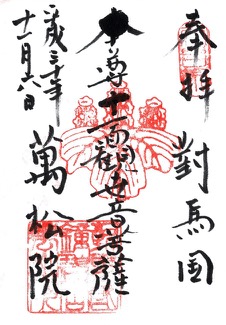 奉拝
對馬国
本尊十一面観世音菩薩
萬松院
平成三十年
十一月六日